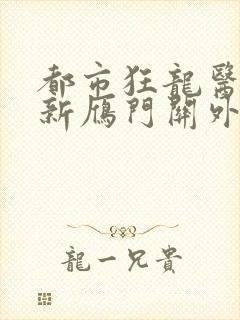 都市狂龍醫
新鴈門關外
龍一兄貴